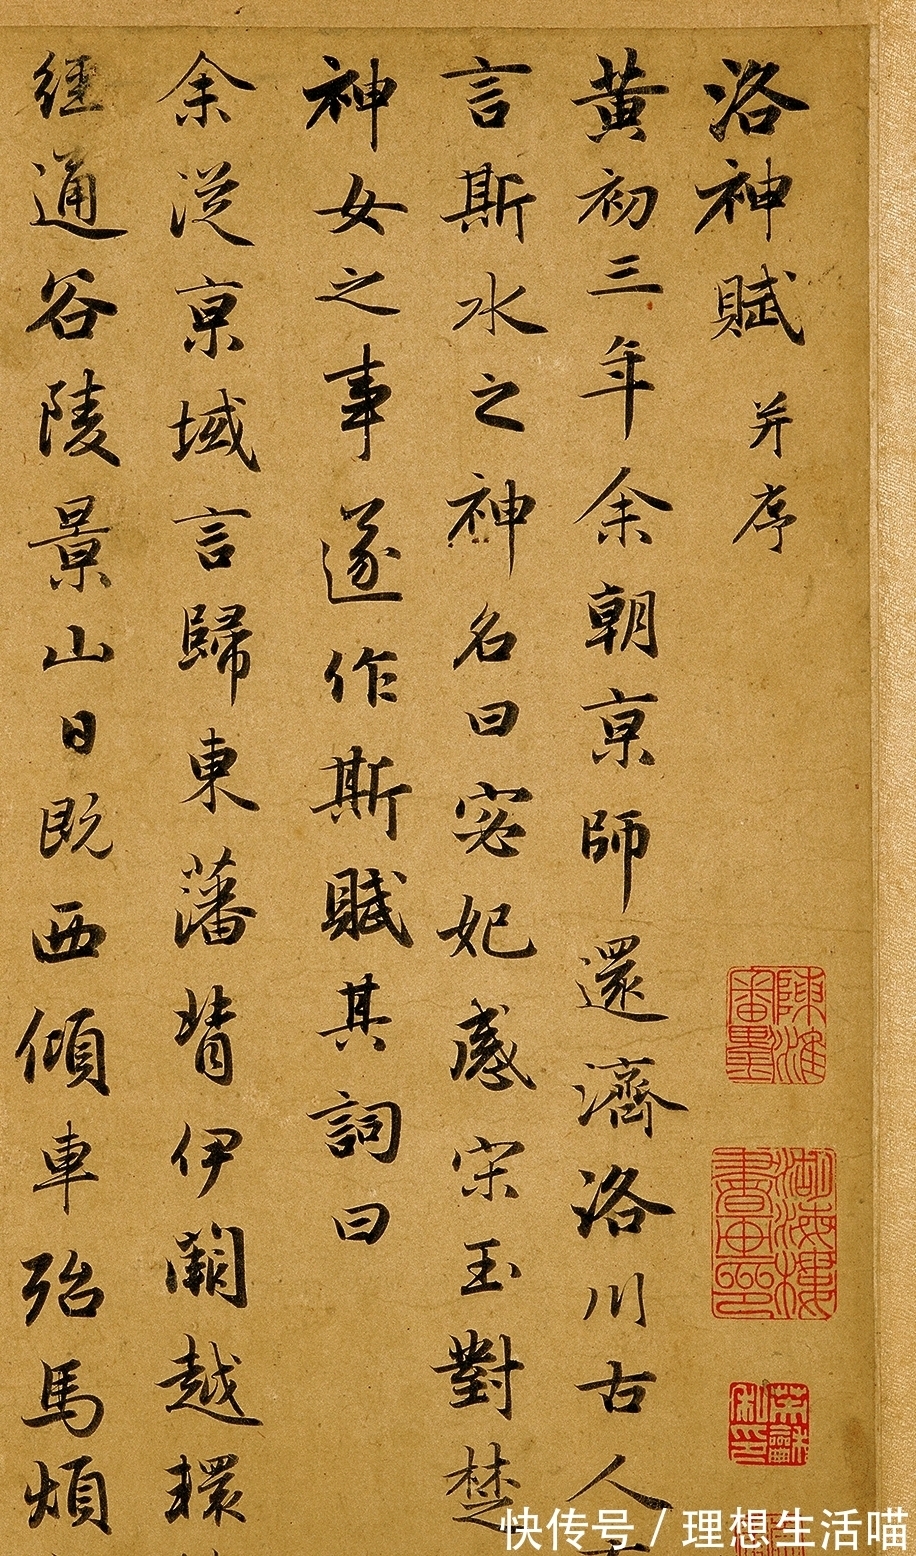 洛神賦 并序
黃初三年余朝京師還濟洛川古人
言斯水之神名曰宓妃感宋玉對楚
神女之事遂作斯賦其詞曰
余從京域言歸東藩背伊闕越轘
經通谷陵景山日既西傾車殆馬煩
快传号 / 理想生活喵